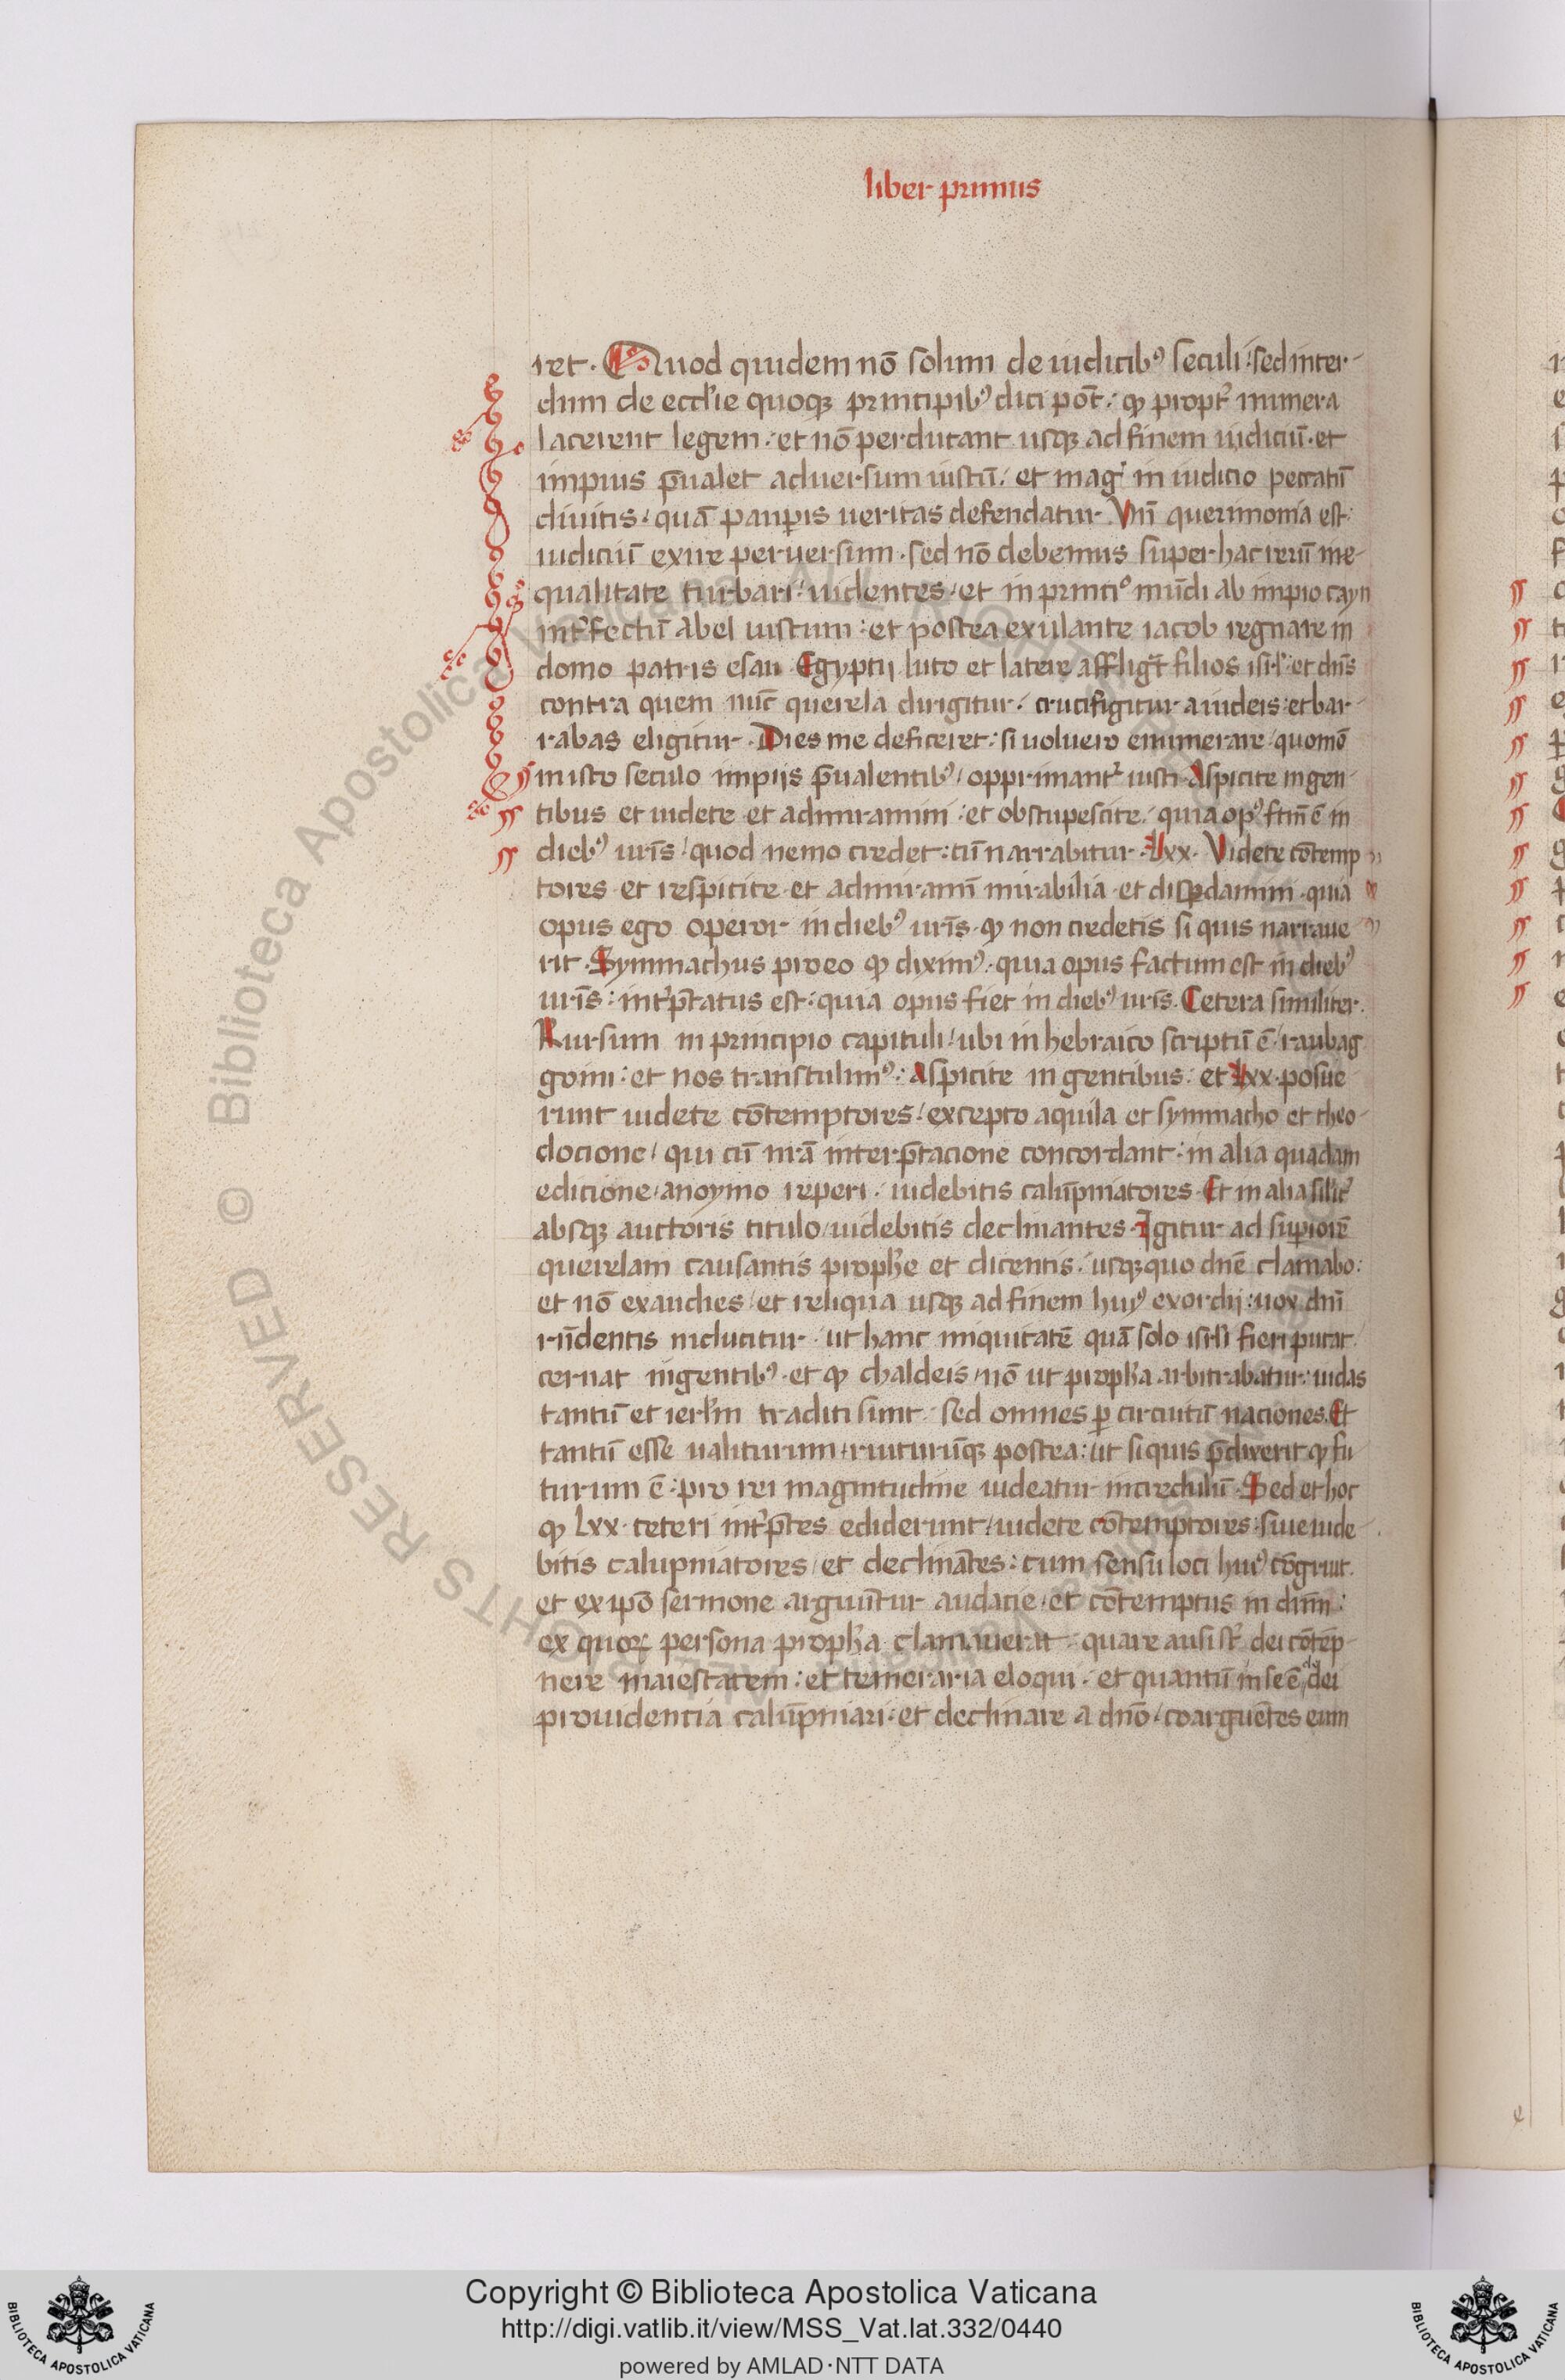 liber primus
ret. Quod quidem nō solum de iudicibꝰ seculi: sed inter-
dum de eccl'ie quoqꝫ principibꝰ dici pōt: qꝫ propt' munera
lacerent legem: et nō perducant usqꝫ ad finem iudiciū. et
impius p̄ualet aduersum iustū: et mag' in iudicio peccatū
diuitis: quā paup̱is ueritas defendatur. Vn̄ querimonia est:
iudiciū exire peruersum. sed nō debemus super hac rerū ine-
qualitate turbari: uidentes: et in principio mūdi ab impio cayn
int'fectū abel iustum: et postea exulante iacob regnare in
domo patris esau Egyptij luto et latere affligūt filios isrl': et dn̄s
contra quem nūc querela dirigitur: crucifigitur a iudeis: et bar-
rabas eligitur. Dies me deficeret: si uoluero enumerare quomō
in isto seculo impijs p̄ualentibꝰ opprimant' iusti. Aspicite in gen-
tibus et uidete et admiramini: et obstupescite: quia opꝰ fcm̄ ē in
diebꝰ ur̄is: quod nemo credet: cū narrabitur. Lxx. Videte cōtemp
tores et respicite et admiramī mirabilia et disperdamini quia
opus ego operor in diebꝰ ur̄is. qꝫ non credetis si quis narraue
rit. Symmachus pro eo qꝫ diximꝰ. quia opus factum est in diebꝰ
ur̄is: int'p̄tatus est: quia opus fiet in diebꝰ ur̄is. Cetera similiter.
Rursum in principio capituli: ubi in hebraico scriptū ē raubag
goim: et nos transtulimꝰ: Aspicite in gentibus: et Lxx. posue
runt uidete cōtemptores: excepto aquila et symmacho et theo-
docione: qui cū nr̄a interp̄tacione concordant: in alia quadam
edicione anoymo reperi: uidebitis calūpniatores. Et in alia sil'it'
absqꝫ auctoris titulo uidebitis declinantes. Igitur ad superiorē
querelam causantis prophe et dicentis: usqꝫquo dn̄e clamabo:
et nō exaudies et reliqua usqꝫ ad finem huiꝰ exordij: uox dn̄i
rn̄dentis inducitur: ut hanc iniquitatē quā solo isrl'i fieri putat
cernat in gentibꝰ. et qꝫ chaldeis nō ut propha arbitrabatur: iudas
tantū et ierl'm traditi sunt: sed omnes p̱ circuitū naciones. Et
tantū esse ualiturum ruiturūqꝫ postea: ut si quis p̄dixerit qꝫ fu
turum ē: pro rei magnitudine uideatur incredulū. Sed et hoc
qꝫ Lxx. ceteri int'p̄tes ediderunt: uidete cōtemptores: siue uide-
bitis calupniatores et declināntes: cum sensu loci huiꝰ cōgruit.
et ex ip̄o sermone arguūtur audacie et cōtemptus in dn̄m:
ex quoꝝ persona propha clamauerat: quare ausi st' dei cōtēp-
nere maiestatem: et temeraria eloqui: et quantū in se ē dei
prouidencia calūpniari: et declinare a dn̄o: coarguētes eum
Copyright © Biblioteca Apostolica Vaticana
http://digi.vatlib.it/view/MSS_Vat.lat.332/0440
powered by AMLAD·NTT DATA